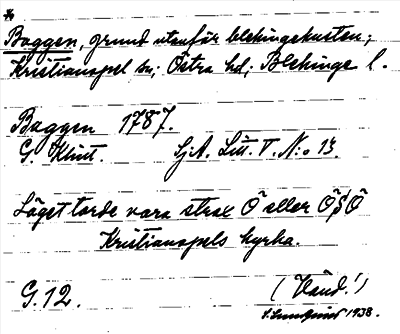 Baggen, grund utanför blekingekusten;
Kristianopel sn; Östra hd; Blekinge l.
Baggen 1787.
G. Klint. Sj.A. Litt. V. N:o 13.
Läget torde vara strax Ö eller ÖSÖ
Kristianopels kyrka.
G.12. (Vänd!)
1938.